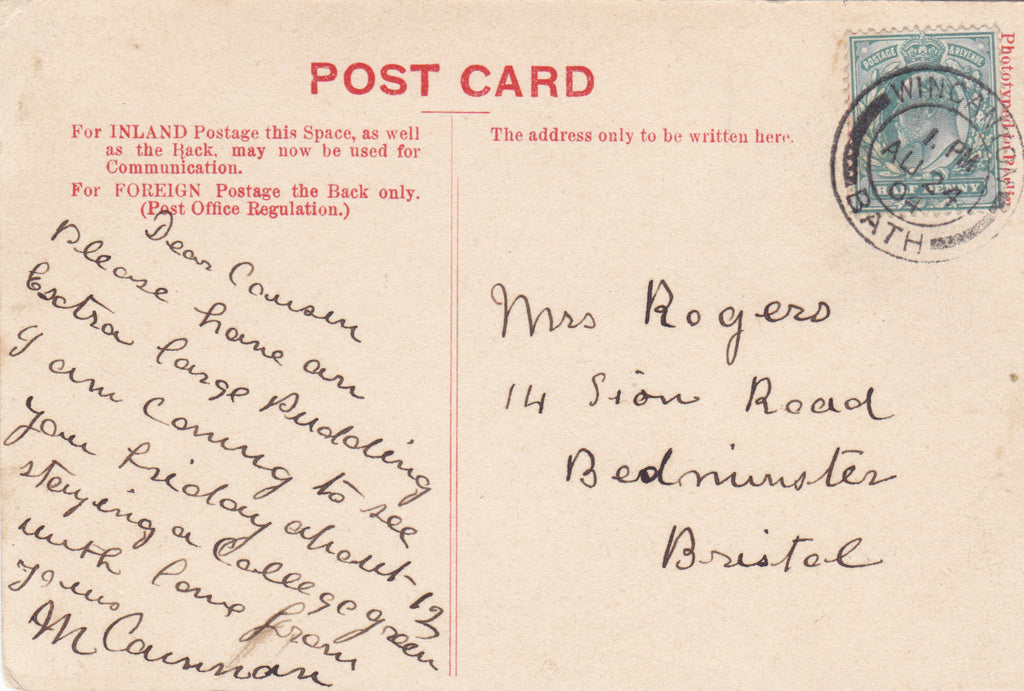 POST CARD
For INLAND Postage this Space, as well
as the Back, may now be used for
Communication.
For FOREIGN Postage the Back only.
(Post Office Regulation.)
The address only to be written here.
POSTAGE & REVENUE
HALFPENNY
WINCANTON
1. PM
AU 24
04
BATH
Dear Cousin
Please have an
Esctra large Pudding
I am Coming to see
you Friday about 12
staying a College green
with love from
yours
M
Mrs Rogers
14 Sion Road
Bedminster
Bristol